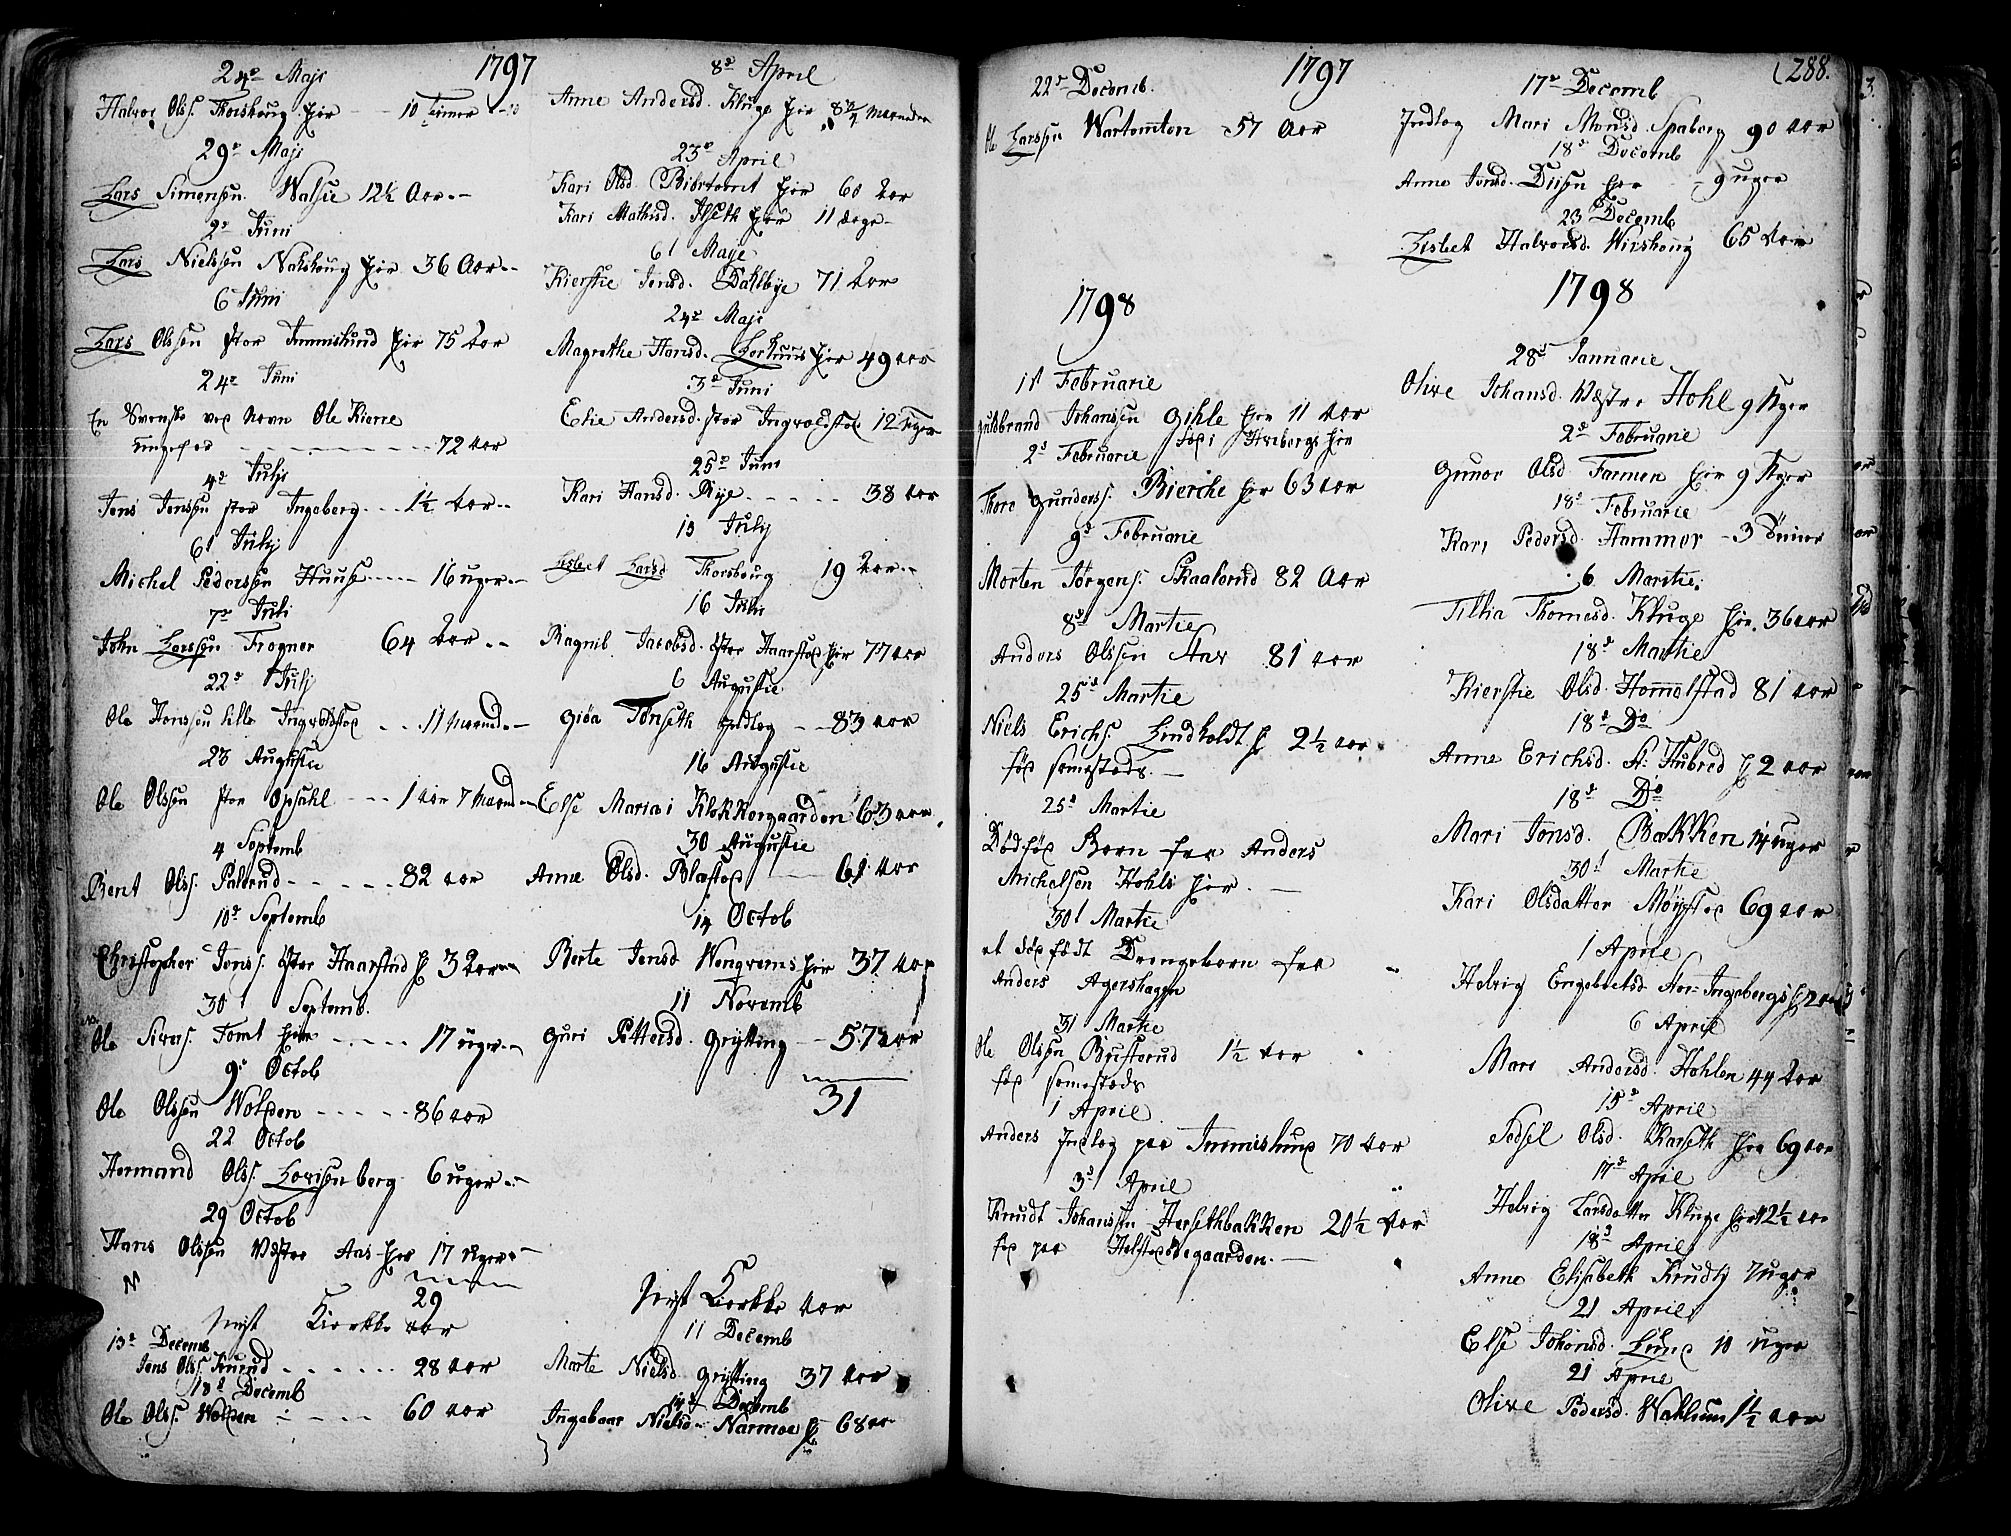 1797
24de Maji
Halvor Olss. Thorshoug hør - - 10 timer
29de Maji
Lars Simensen Walsie 12½ Aar
2de Juni
Lars Nielssen Nakshoug hør 36 Aar
6 Juni
Lars Olssen stor Immislund hør 75 Aar
24de Juni
En Svensk ved Navn Ole Kierre
ungefær - - - - 72 aar
4de Julij
Jens Jenssen stor Ingeberg - - 1½ Aar
6te Julij
Michel Pederssen Huuse - - - 16 uger
7de Juli
John Larssen Frogner 64 Aar
22de Julij
Ole Hanssen lille Ingvoldstad - - 11 maaned
23 Augustie
Ole Olssen stor Opsahl - - - 1 aar 7 maaned
4 Septemb
Bent Olss. Palerud - - - - 82 aar
10de Septemb
Christopher Jonss. Øster Haarstad h 32 aar
30te Septemb.
Ole Sivers. Tomt hør - - - - 17 uger
9de Octob
Ole Olssen Wolden - - - - 86 aar
22 Octob
Hermand Olss. Lovisenberg 6 uger
29 Octob
Hans Olssen Vester Aas hør 17 uger
29
Nyst Kierkke aar
13de Decemb
Jens Olss. - - - - 28 aar
18de Decemb
Ole Olss. Wolden - - - 60 aar
8de April
Anne Andersd. Kluge hør maaneder
23de April
Kari Olsd. Biørtomt hør 60 Aar
Kari Mathisd. Ilseth hør 11 dage
6te Maye
Kierstie Jensd. Dahlbye 71 Aar
24de Maji
Magrethe Hansd. hør 49 aar
3de Juni
Elie Andersd. stor Ingvoldstad 12 uger
25de Juni
Kari Hansd. Rye - - - - 38 aar
13 Julij
Lisbet Larsd Thorshoug 19 Aar
16 Julii
Ragnild Jacobsd. Øster Haarstad hør 77 aar
6 Augustie
Giøa Tønseth Indlog - - 83 aar
16 Augustie
Else Maria i Klokkergaarden 63 aar
30 Augustie
Anne Olsd. Blæstad - - 61 Aar
14 Octob
Berte Jensd Wengrems hør 37 Aar
11 Novemb
Guri Pettersd. Grytting - - 57 aar
31
Nyst Kierkke aar
11 Decemb
Marte Nielsd. Grytting 37 Aar
14de Decemb
Ingebaar Nielsd. Narmoe h 68 aar
1797
288.
22de Decemb.
Ole Larssen Wartomten 57 Aar
1798
1te Februarie
Guldbrand Johanssen Gihle hør 11 Aar
død i Arebergs hør
2de Februarie
Thore Gunderss. Bierche hør 63 aar
9de Februarie
Morten Jørgens. Skaalerud 82 Aar
8de Martie
Anders Olssen Aar 81 aar
25de Martie
Niels Erichs. Lindholdt h 2½ aar
død sammestads.
25de Martie
Dødfød Barn fra Anders
Michelsen Hohls hør.
30te Martie
et død født Drengebarn fra
Anders Agershagen
31 Martie
Ole Olssen Bysterud 1½ Aar
død sammestads
1 April
Anders Indlog paa Immislund 70 Aar
3de April
Knudt Johanssen Hersethbakken 20½ Aar
død paa Helstadødegaarden.
17de Decemb
Indlog Mari Monsd. Spaberg 90 Aar
18de Decemb
Anne Jensd. Disen hør - 9 uger
23 Decemb
Lisbet Halvorsd. Wirshoug 65 Aar
1798
28de Januarie
Olive Johansd. Vestre Hohl 9 Uger
2de Februarie
Gunor Olsd. Farmen hør 9 Uger
18de Februarie
Kari Pedersd. Hammer - 3 Timer
6 Martie
Tillia Thomasd. Kluge hør. 36 aar
18de Martie
Kierstie Olsd. Hommelstad 81 aar
18de Do
Anne Erichsd. St: Hubred h 2 aar
18de Do
Mari Jonsd. Bakken 14 uger
30te Martie
Kari Olsdatter Mørstad 69 aar
1 April
Helvig Engebretsd. Stor: Ingebergs h 2 aar
6 April
Mari Andersd. Hohlen 44 Aar
15de April
Sedsel Olsd. Karseth hør 69 aar
17de April
Helvig Larsdatter Kluge hør 12½ aar
18de April
Anne Elisabeth Knudtz 7 uger
21 April
Else Johansd. Lund 10 uger
21 April
Olive Pedersd. Wahlum 1½ aar